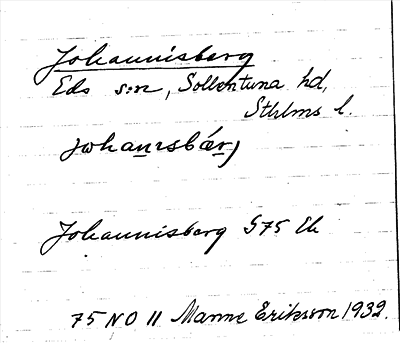 Johannisberg
Eds s:n, Sollentuna hd,
Sthlms l.
johanısbérj
Johannisberg G75 Ek
75 NO 11 Manne Eriksson 1932.